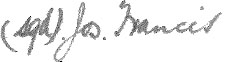 (sgd). Jos. Francis